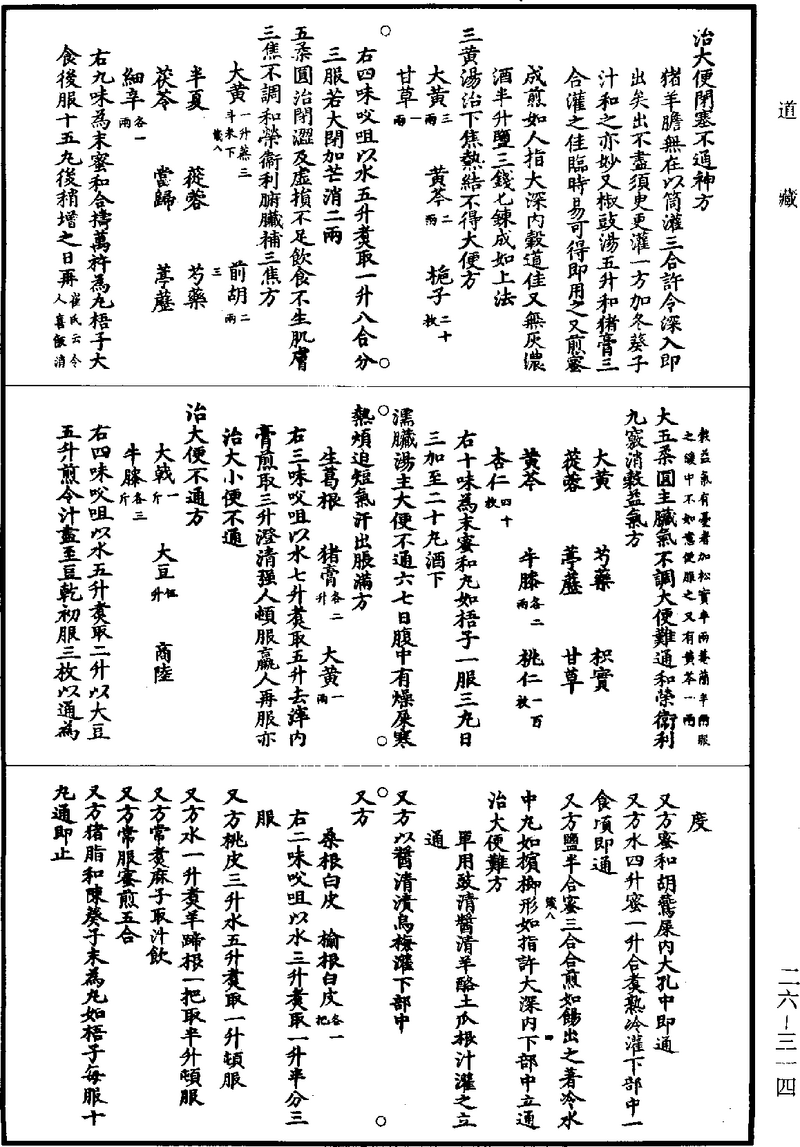 道藏
治大便閉塞不通神方
猪羊膽無在以筒灌三合許令深入即
出矣出不盡須臾更灌一方加冬葵子
汁和之亦妙又椒豉湯五升和猪膏三
合灌之佳臨時易可得即用之又煎蜜
成煎如人指大深內穀道佳又無灰濃
酒半升鹽三錢匕鍊成如上法
三黄湯治下焦熱結不得大便方
大黄三兩 黄芩二兩 梔子二十枚
甘草一兩
右四味㕮咀以水五升煑取一升八合分
三服若大閉加芒消二兩
五柔圓治閉澀及虛損不足飲食不生肌膚
三焦不調和榮衞利腑臟補三焦方
大黄一升蒸三斗米下 前胡二兩
藏八
半夏 蓯蓉 芍藥
三
茯苓 當歸 葶藶
細辛各一兩
右九味為末蜜和合擣萬杵為丸梧子大
食後服十五丸後稍增之日再崔氏云令人喜飯消
穀益氣有憂者加松實半兩菴䕡半兩服
之緩中不如意便服之又有黄芩一兩
大五柔圓主臟氣不調大便難通和榮衞利
九竅消穀益氣方
大黄 芍藥 枳實
蓯蓉 葶藶 甘草
黄芩 牛膝各二兩 桃仁一百枚
杏仁四十枚
右十味為末蜜和丸如梧子一服三丸日
三加至二十丸酒下
濡臟湯主大便不通六七日腹中有燥屎寒
熱煩迫短氣汗出脹滿方
生葛根 猪膏各二升 大黄一兩
右三味㕮咀以水七升煑取五升去滓內
膏煎取三升澄清强人頓服羸人再服亦
治大小便不通
治大便不通方
大戟一斤 大豆伍升 商陸
牛膝各三斤
右四味㕮咀以水五升煑取二升以大豆
五升煎令汁盡至豆乾初服三枚以通為
度
又方蜜和胡鷰屎內大孔中即通
又方水四升蜜一升合煑熟冷灌下部中一
食頃即通
又方鹽半合蜜三合合煎如餳出之著冷水
藏八
中丸如檳榔形如指許大深內下部中立通
四
治大便難方
單用豉清醬清羊酪土瓜根汁灌之立
通
又方以醬清漬烏梅灌下部中
又方
桑根白皮 榆根白皮各一把
右二味㕮咀以水三升煑取一升半分三
服
又方桃皮三升水五升煑取一升頓服
又方水一升煑羊蹄根一把取半升頓服
又方常煑麻子取汁飲
又方常服蜜煎五合
又方猪脂和陳葵子末為丸如梧子每服十
丸通即止
二六-三一四